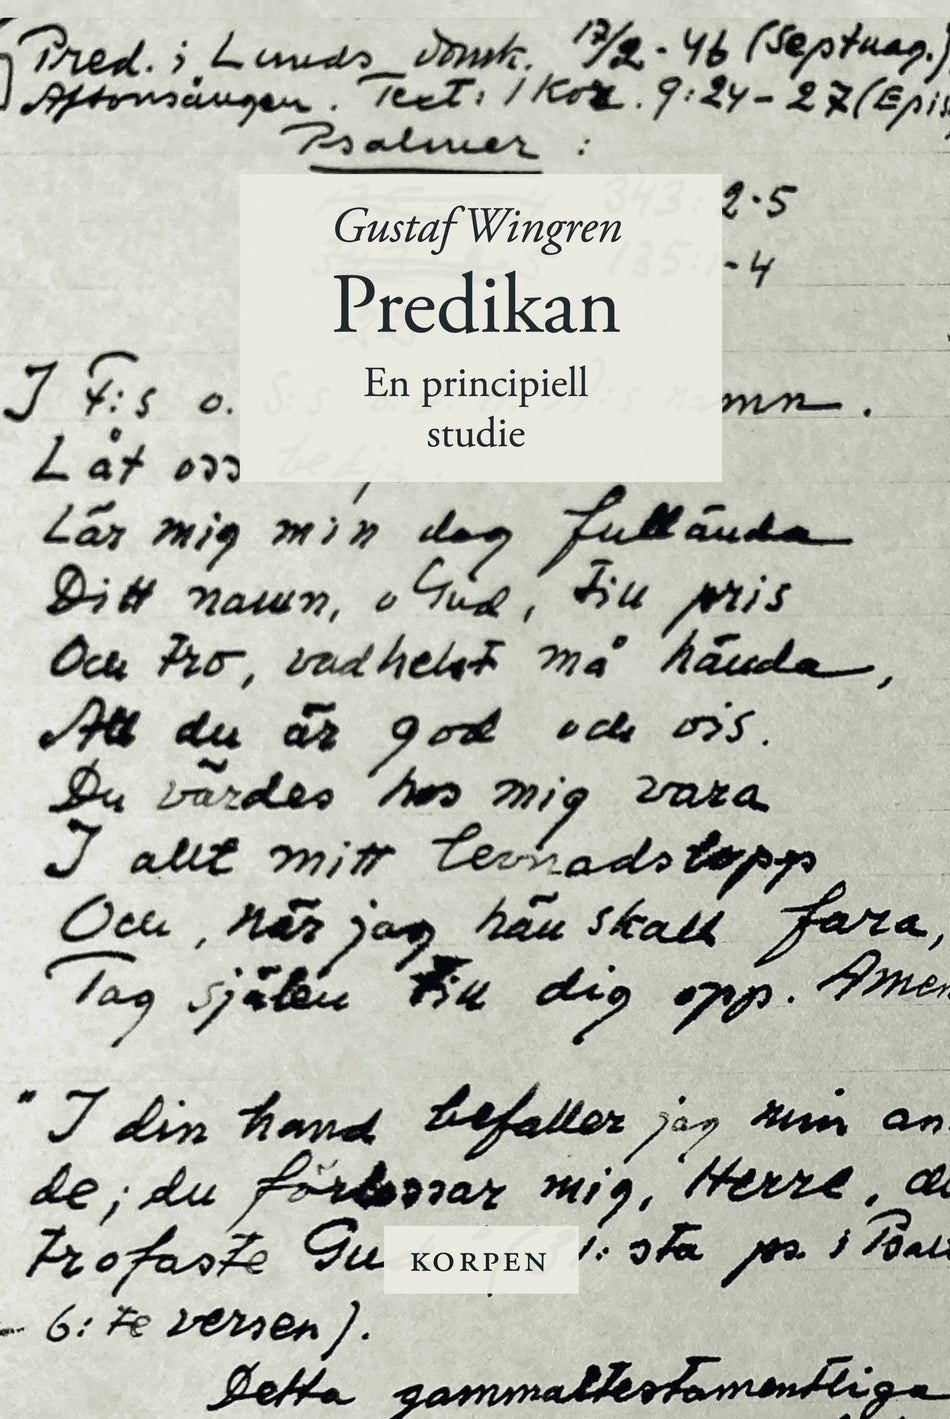 Pred. i Lunds domk. 17/2 - 46 (Septuag.)
Aftonsången. Text: 1 Kor. 9:24 - 27 (Epis
Psalmer :
343: 2-5
135:1-4
Gustaf Wingren
Predikan
En principiell
studie
I F:s o. S:s namn.
Låt oss bedja.
Lär mig min dag fullända
Ditt namn, o Gud, till pris
Och tro, vadhelst må hända,
Att du är god och vis.
Du värdes hos mig vara
I allt mitt levnadslopp
Och, när jag hän skall fara,
Tag själen till dig opp. Amen
"I din hand befaller jag min an-
de; du förlossar mig, Herre, du
trofaste Gu 1: sta ps. i Psal
- 6: te versen).
KORPEN
Detta gammaltestamentliga